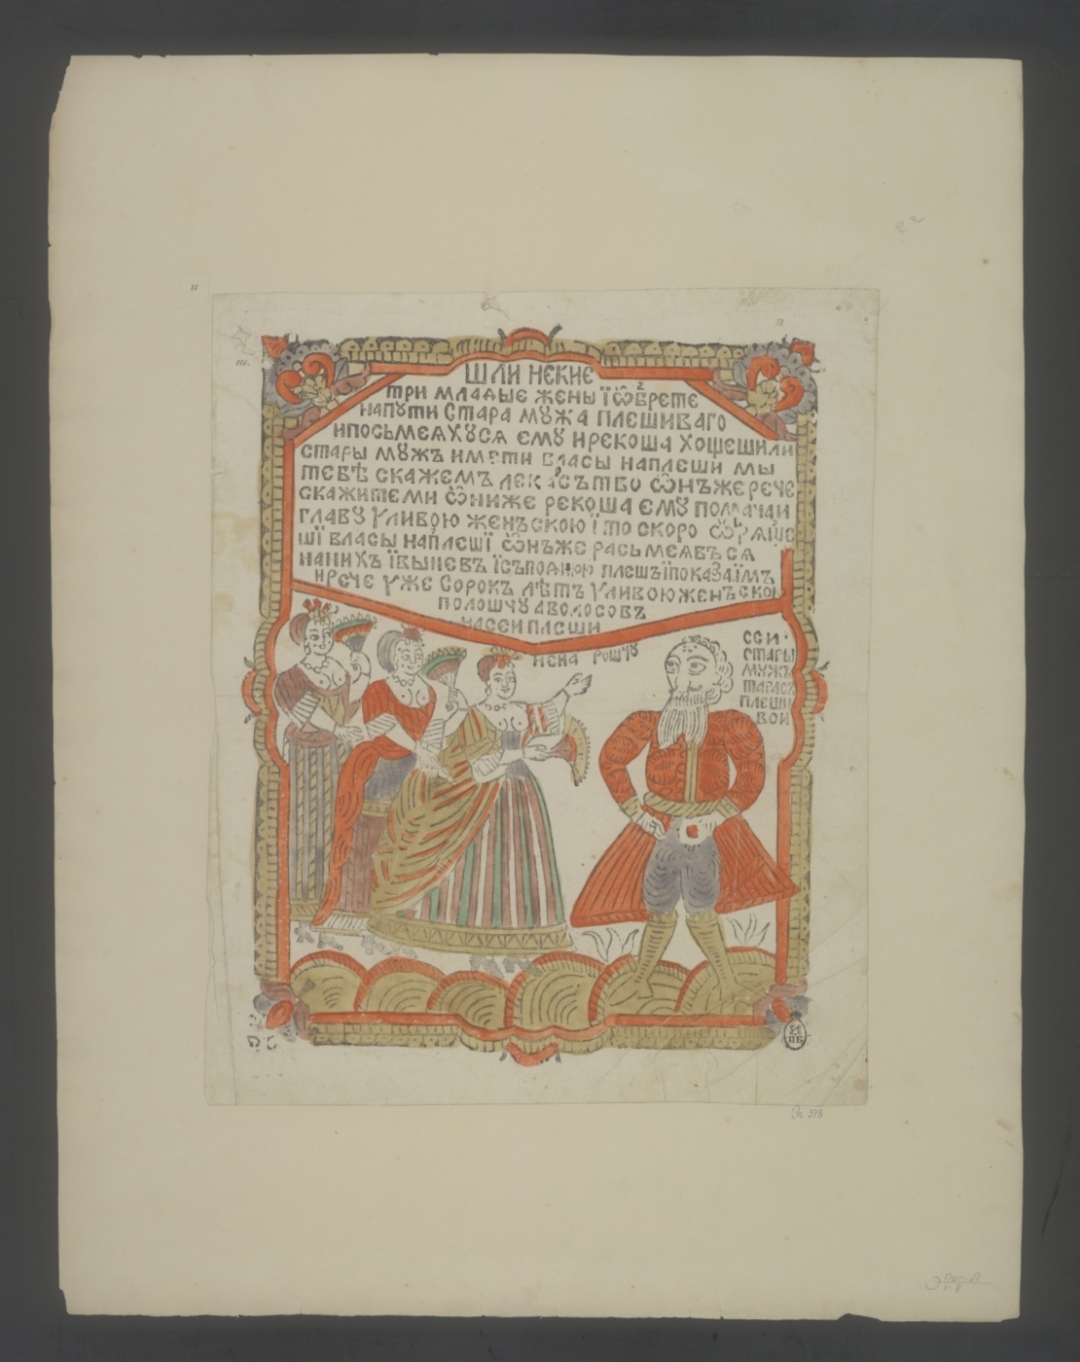 ШЛИ НЕКИЕ
ТРИ МЛАДЫЕ ЖЕНЫ Ї ѾБРЕТЕ
НАПꙊТИ СТАРА МꙊЖА ПЛЕШИВАГО
ИПОСЬМЕЯХꙊСЯ ЕМꙊ ИРЕКОША ХОЩЕШИЛИ
СТАРЫ МꙊЖЪ ИМЕТИ ВЛАСЫ НАПЛЕШИ МЫ
ТЕБѢ СКАЖЕМЪ ЛЕКАСЪТВО ѾНЪЖЕ РЕЧЕ
СКАЖИТЕМИ ѾНИЖЕ РЕКОША ЕМꙊ ПОМАЧАИ
ГЛАВꙊ УЛИВОЮ ЖЕНЪСКОЮ Ї ТО СКОРО
ШЇ ВЛАСЫ НАПЛЕШЇ ѾНЪЖЕ РАСЬМЕЯВЪСЯ
НАНИХЪ ЇВЫНЕВЪ ПЛЕШЪ ЇПОКАЗАЇМЪ
ИРЕЧЕ УЖЕ СОРОКЪ ЛѢТЪ УЛИВОЮЖЕНЪСКОЮ
ПОЛОШЧꙊ АВОЛОСОВЪ
НАСЕИ ПЛЕШИ
СЕИ
СТАРЫ
МꙊЖЪ
ТАРАСЪ
ПЛЕШИ
ВОИ